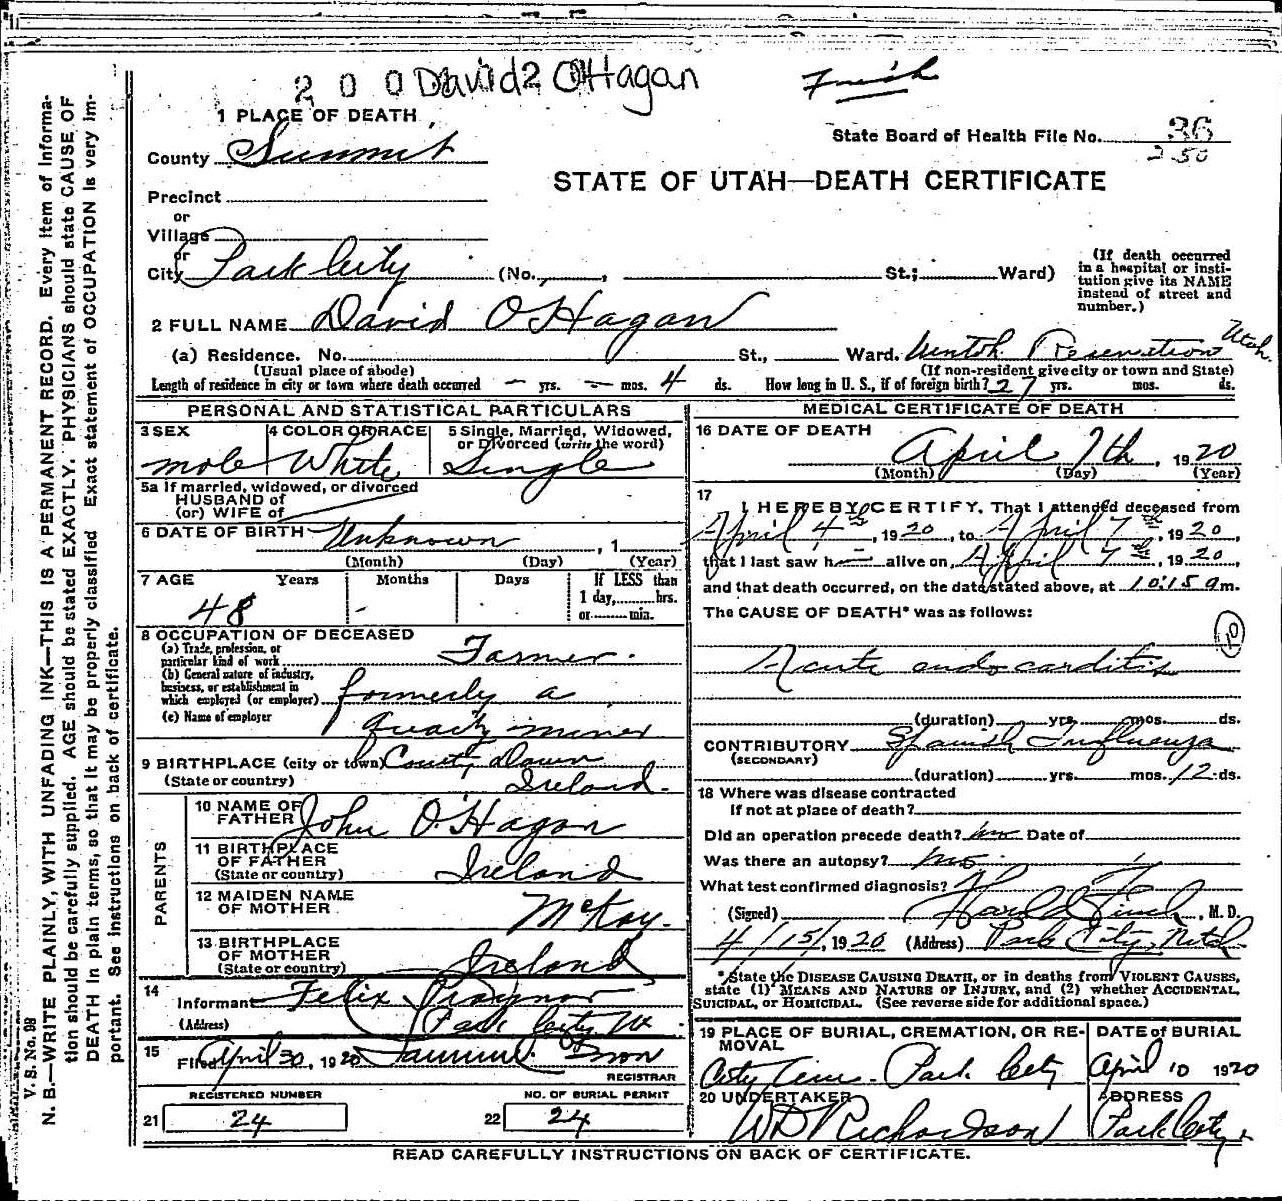 2 0 0 David 2 O'Hagan
1 PLACE OF DEATH
County Summit
State Board of Health File No. 36
250
STATE OF UTAH—DEATH CERTIFICATE
Precinct
or
Village
or
City Park City (No. , St.; Ward)
(If death occurred in a hospital or institution give its NAME instead of street and number.)
2 FULL NAME David O'Hagan
(a) Residence. No. St., Ward. Reservation Utah.
(Usual place of abode) (If non-resident give city or town and State)
Length of residence in city or town where death occurred — yrs. — mos. 4 ds. How long in U. S., if of foreign birth? 27 yrs. mos. ds.
PERSONAL AND STATISTICAL PARTICULARS
3 SEX male
4 COLOR OR RACE White
5 Single, Married, Widowed, or Divorced (write the word) Single
5a If married, widowed, or divorced
HUSBAND of
(or) WIFE of
6 DATE OF BIRTH Unknown , 1
(Month) (Day) (Year)
7 AGE Years Months Days If LESS than 1 day, hrs. or min.
48 -
8 OCCUPATION OF DECEASED
(a) Trade, profession, or particular kind of work Farmer.
(b) General nature of industry, business, or establishment in which employed (or employer) formerly a
(c) Name of employer quartz miner
9 BIRTHPLACE (city or town) County Down
(State or country) Ireland.
PARENTS
10 NAME OF FATHER John O'Hagan
11 BIRTHPLACE OF FATHER (State or country) Ireland
12 MAIDEN NAME OF MOTHER McKay.
13 BIRTHPLACE OF MOTHER (State or country) Ireland
14 Informant Felix
(Address) Park City Ut.
15 Filed April 30, 1920
REGISTRAR
REGISTERED NUMBER NO. OF BURIAL PERMIT
21 24 22 24
MEDICAL CERTIFICATE OF DEATH
16 DATE OF DEATH
April 7th, 1920
(Month) (Day) (Year)
17 I HEREBY CERTIFY, That I attended deceased from
April 4th, 1920, to April 7th, 1920,
that I last saw h— alive on April 7th, 1920,
and that death occurred, on the date stated above, at 10:15 a m.
The CAUSE OF DEATH* was as follows:
Acute endocarditis
(duration) yrs. mos. ds.
CONTRIBUTORY Spanish Influenza
(SECONDARY)
(duration) yrs. mos. 12 ds.
18 Where was disease contracted
if not at place of death?
Did an operation precede death? no Date of
Was there an autopsy? no
What test confirmed diagnosis?
(Signed) Harold , M. D.
4/15, 1920 (Address) Park City, Utah
*State the DISEASE CAUSING DEATH, or in deaths from VIOLENT CAUSES, state (1) MEANS AND NATURE OF INJURY, and (2) whether ACCIDENTAL, SUICIDAL, or HOMICIDAL. (See reverse side for additional space.)
19 PLACE OF BURIAL, CREMATION, OR REMOVAL DATE of BURIAL
City Cem. Park City April 10 1920
20 UNDERTAKER ADDRESS
W D Richardson Park City
READ CAREFULLY INSTRUCTIONS ON BACK OF CERTIFICATE.
V. S. No. 98
N. B.—WRITE PLAINLY, WITH UNFADING INK—THIS IS A PERMANENT RECORD. Every item of information should be carefully supplied. AGE should be stated EXACTLY. PHYSICIANS should state CAUSE OF DEATH in plain terms, so that it may be properly classified. Exact statement of OCCUPATION is very important. See instructions on back of certificate.